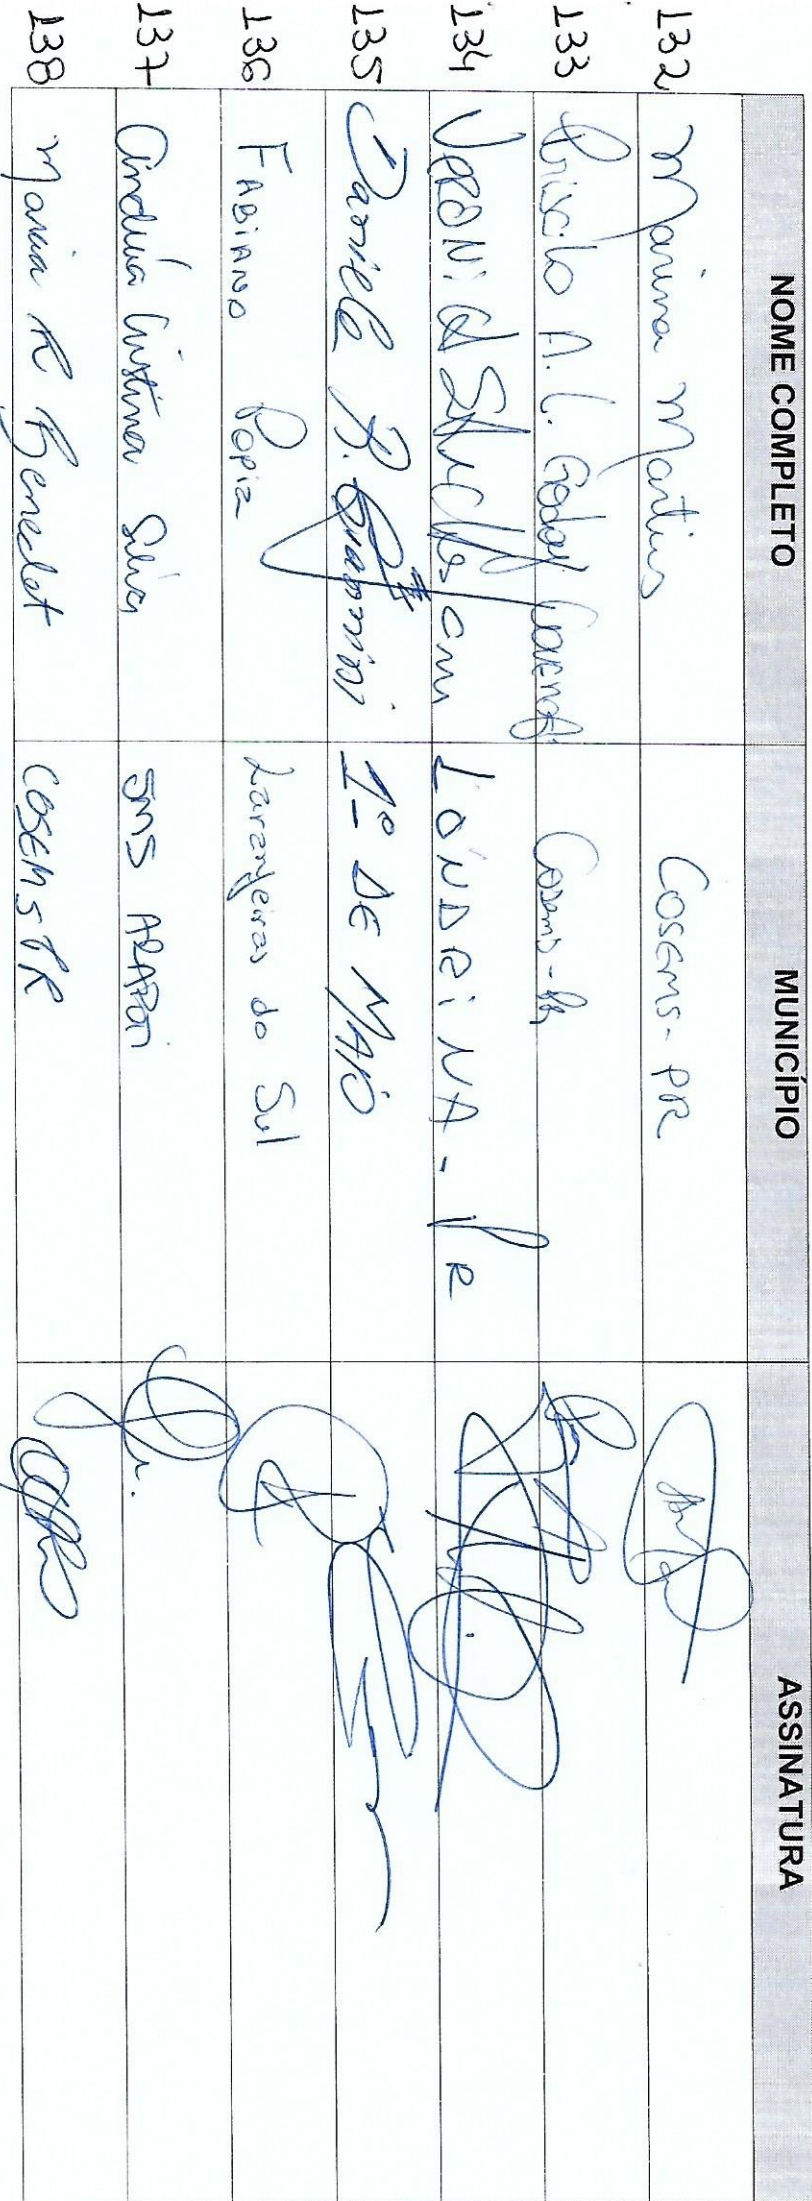 NOME COMPLETO MUNICÍPIO ASSINATURA
132 Marina Martins COSEMS-PR
133 Priscila A. L. Godoy Cosems-PR
134 LONDRINA - PR
135 Daniele B. 1º DE MAIO
136 FABIANO Popia Laranjeiras do Sul
137 Andréia Cristina Silva SMS ARAPOTI
138 Maria R Benedet COSEMS PR